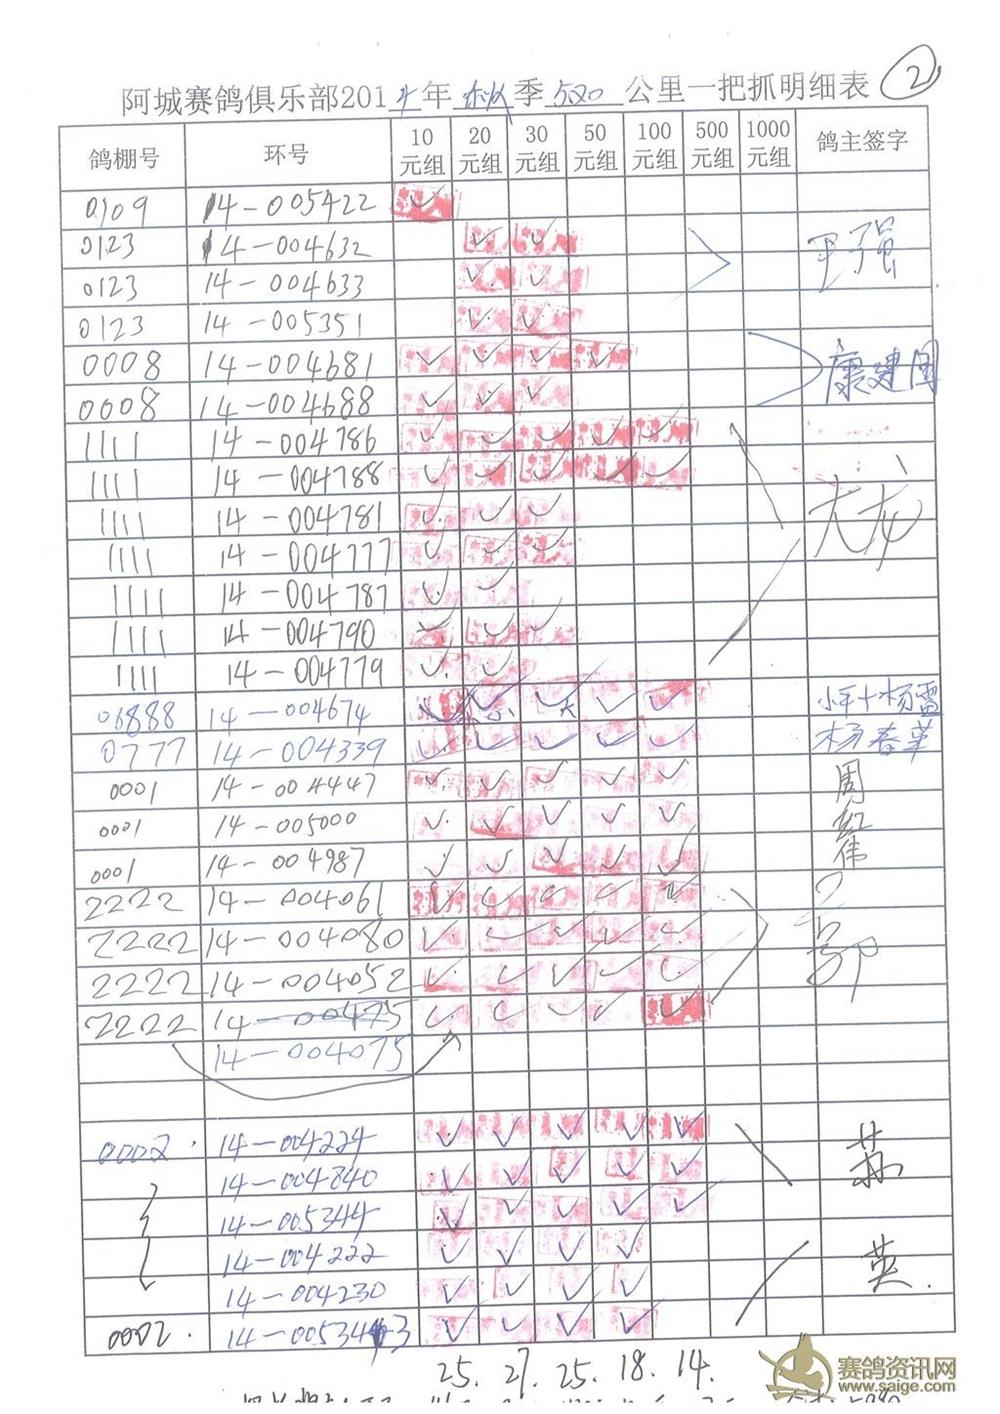 ②
阿城赛鸽俱乐部2014年 秋 季 500 公里一把抓明细表
鸽棚号 环号 10元组 20元组 30元组 50元组 100元组 500元组 1000元组 鸽主签字
0109 14-005422 ✓
0123 14-004632 ✓ ✓
0123 14-004633 ✓ ✓
0123 14-005351 ✓ ✓
0008 14-004681 ✓ ✓ ✓ ✓ 康建国
0008 14-004688 ✓ ✓ ✓
1111 14-004786 ✓ ✓ ✓ ✓ ✓
1111 14-004788 ✓ ✓ ✓ ✓ ✓
1111 14-004781 ✓ ✓ ✓ 大龙
1111 14-004777 ✓ ✓ ✓
1111 14-004787 ✓ ✓
1111 14-004790 ✓ ✓ ✓
1111 14-004779 ✓ ✓
06888 14-004674 ✓ ✓ ✓ ✓ ✓ 杨雷
0777 14-004339 ✓ ✓ ✓ ✓ ✓ 杨春革
0001 14-004447 ✓ ✓ ✓ ✓ ✓ 周
0001 14-005000 ✓ ✓ ✓ ✓ ✓ 红
0001 14-004987 ✓ ✓ ✓ ✓ ✓ 伟
2222 14-004061 ✓ ✓ ✓ ✓ ✓
2222 14-004080 ✓ ✓ ✓ ✓ ✓
2222 14-004052 ✓ ✓ ✓ ✓ ✓ 郭
2222 14-00475 ✓ ✓ ✓ ✓ ✓
14-004075
0002 14-004224 ✓ ✓ ✓ ✓ ✓
14-004840 ✓ ✓ ✓ ✓ ✓
14-005344 ✓ ✓ ✓ ✓ ✓
14-004222 ✓ ✓ ✓ ✓
14-004230 ✓ ✓ ✓ ✓ 英.
0002. 14-005343 ✓ ✓ ✓ ✓
25. 27. 25. 18. 14.
赛鸽资讯网
www.saige.com